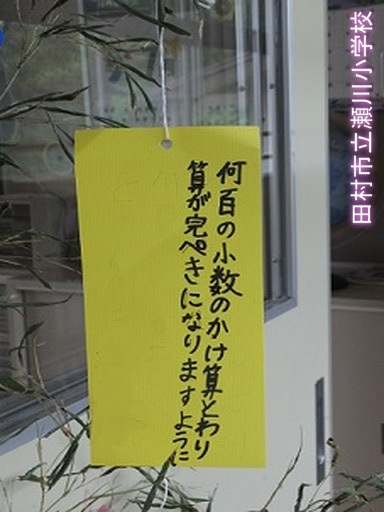 何百の小数のかけ算とわり
算が完ぺきになりますように
田村市立瀬川小学校